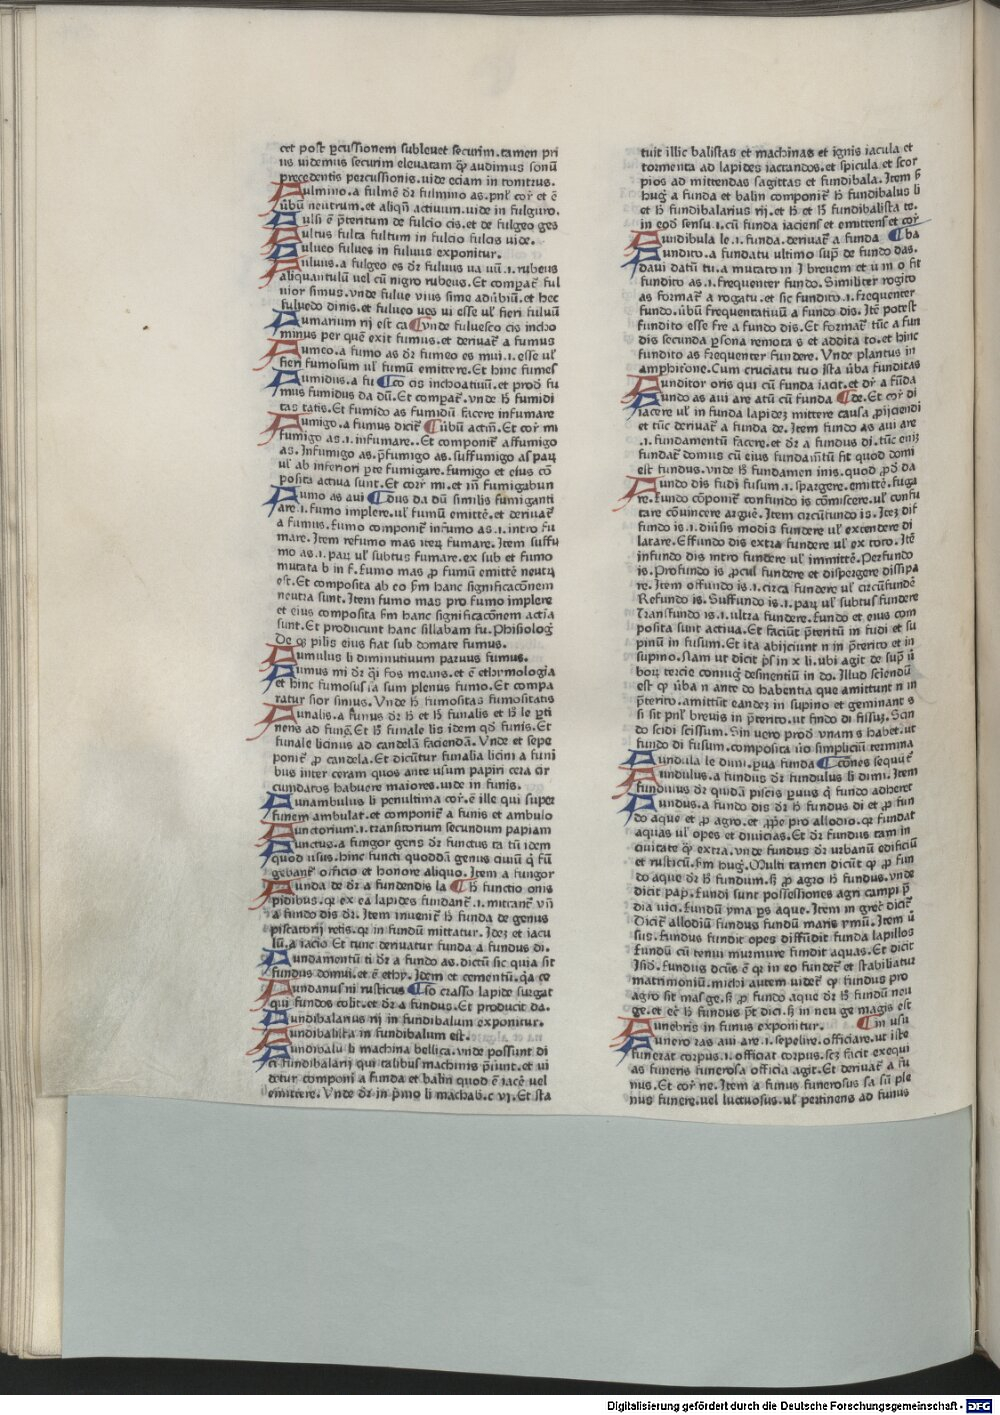 cet post ꝑcussionem subleuet securim.tamen pri
us videmus securim eleuatam qͥ audimus sonū
precedentis percussionis.vide eciam in tonitrus.
Fulmino.a fulmē dr̄ fulmino as.pnͥl cor̄ et ē
v̄bū neutrum.et aliqn̄ actiuum.vide in fulguro.
Fulsi ē p̄teritum de fulcio cis.et de fulgeo ges
Fultus fulta fultum in fulcio fulcis vide.
Fulueo fulues in fuluus exponitur.
Fuluus.a fulgeo es dr̄ fuluus va vū.i.rubeus
aliquantulū vel cū nigro rubeus.Et compat̄ ful
uior simus.vnde fulue vius sime aduͥbiū.et hec
fuluedo dinis.et fulueo ues ui esse ul̓ fieri fuluū
Fumarium rij est ca ⸿vnde fuluesco cis incho
minus per quē exit fumus.et deriuat̄ a fumus
Fumeo.a fumo as dr̄ fumeo es mui.i.esse ul̓
fieri fumosum ul̓ fumū emittere.Et hinc fumes
Fumidus.a fu ⸿co cis inchoatiuū.et prod̓ fu
mus fumidus da dū.Et compat̄.vnde hͦ fumidi
tas tatis.Et fumido as fumidū facere infumare
Fumigo.a fumus dicit̄ ⸿v̄bū actiū.Et cor̄ mi
fumigo as.i.infumare..Et componit̄ affumigo
as.Infumigo as.p̄fumigo as.suffumigo as parꝝ
ul̓ ab inferiori ꝑte fumigare.fumigo et eius cō
posita actiua sunt.Et corr̄ mi.et in̄ fumigabun
Fumo as aui ⸿dus da dū similis fumiganti
are.i.fumo implere.ul̓ fumū emittē.et deriuat̄
a fumus.fumo componit̄ infumo as.i.intro fu
mare.Item refumo mas iteꝝ fumare.Item suffu
mo as.i.parꝝ ul̓ subtus fumare.ex sub et fumo
mutata b in f.fumo mas ꝓ fumū emittē neutꝝ
est.Et composita ab eo s̄m hanc significacōnem
neutra sunt.Item fumo mas pro fumo implere
et eius composita s̄m hanc significacōnem actīa
sunt.Et producunt hanc sillabam fu.Phisiolog̓
De qͦ pilis eius fiat sub domate fumus.
Fumulus li diminutiuum paruus fumus.
Fumus mi dr̄ qͥi fos means.et ē ethymologīa
et hinc fumosus sa sum plenus fumo.Et compa
ratur sior simus.Vnde hͦ fumositas fumositatis
Funalis.a funus dr̄ hͦ et hͦ funalis et hͦ le ꝑti
nens ad funē.Et hͦ funale lis idem qd̓ funis.Et
funale licinus ad candelā faciendā.Vnde et sepe
ponit̄ ꝓ candela.Et dicūtur funalia licini a funi
bus inter ceram quos ante usum papiri cera cir
cumdatos habuere maiores.vide in funis.
Funambulus li penultima cor̄.ē ille qui super
funem ambulat.et componit̄ a funis et ambulo
Functorium.i.transitorium secundum papiam
Functus.a fungor geris dr̄ functus ta tū idem
quod usus.hinc functi quoddā genus ciuiū q̓ fū
gebant̄ officio et honore aliquo.Item a fungor
Funda de dr̄ a fundendis la ⸿hͦ functio onis
pidibus.qꝛ ex ea lapides fundant̄.i.mittant̄ vn̄
a fundo dis dr̄.Item inuenit̄ hͦ funda de genus
piscatorij retis.qꝛ in fundū mittatur.Idez et iacu
lū.a iacio Et tunc deriuatur funda a fundus di.
Fundamentū ti dr̄ a fundo as.dictū sic quia sit
fundus domui.et ē ethy.Idem et cementū.qꝛa ce
Fundanus ni rusticus ⸿so crasso lapide surgat
qui fundos colit.et dr̄ a fundus.Et producit da.
Fundibalarius rij in fundibalum exponitur.
Fundibalista in fundibalum est.
Fundibalū li machina bellica.vnde possunt di
ci fundibalarij qui talibus machinis p̄sunt.et vi
detur componi a funda et balin quod ē iacē vel
emittere.Vnde dr̄ in p̄mo li machab.c vj.Et sta
tuit illic balistas et machinas et ignis iacula et
tormenta ad lapides iactandos.et spicula et scor
pios ad mittendas sagittas et fundibala.Item s̄
hug̓ a funda et balin componit̄ hͦ fundibalus li
et hͦ fundibalarius rij.et hͦ et hͦ fundibalista te.
in eod̓ sensu.i.cū funda iaciens et emittens et cor̄
Fundibula le.i.funda.deriuat̄ a funda ⸿ba
Fundito.a fundatu ultimo sup̄ de fundo das.
daui datū tu.a mutato in I breuem et u in o fit
fundito as.i.frequenter fundo.Similiter rogito
as format̄ a rogatu.et sic fundito.i.frequenter
fundo.v̄bū frequentatiuū a fundo dis.Itē potest
fundito esse fre a fundo dis.Et format̄ tūc a fun
dis secunda ꝑsona remota s et addita to.et hinc
fundito as frequenter fundere.Vnde plautus in
amphitrione.Cum cruciatu tuo ista v̄ba funditas
Funditor oris qui cū funda iacit.et dr̄ a fūda
Fundo as aui are atū cū funda ⸿de.Et cor̄ di
iacere ul̓ in funda lapidez mittere causa ꝓijciendi
et tūc deriuat̄ a funda de.Item fundo as aui are
.i.fundamentū facere.et dr̄ a fundus di.tūc enīz
fundat̄ domus cū eius fundam̄tū fit quod domi
est fundus.vnde hͦ fundamen inis.quod ꝓd̓ da
Fundo dis fudi fusum.i.spargere.emittē.fuga
re.fundo cōponit̄ confundo is cōmiscere.ul̓ confu
tare cōuincere arguē.Item circūfundo is.Itez dif
fundo is.i.diu̓sis modis fundere ul̓ extendere di
latare.Effundo dis extra fundere ul̓ ex toto.Itē
infundo dis intro fundere ul̓ immittē.Perfundo
is.Profundo is ꝓcul fundere et dispergere dissipa
re.Item offundo is.i.circa fundere ul̓ circūfundē
Refundo is.Suffundo is.i.parꝝ ul̓ subtus fundere
Transfundo is.i.ultra fundere.fundo et eius com
posita sunt actiua.Et faciūt p̄teritū in fudi et su
pinū in fusum.Et ita abijciunt n in p̄terito et in
supino.Nam ut dicit p̓s in x li.ubi agit de sup̓ ū
borꝝ tercie coniug̓ desinentiū in do.Illud sciendū
est qͥ v̄ba n ante do habentia que amittunt n in
p̄terito.amittūt eandez in supino et geminant s
si sit pnl̓ breuis in p̄terito.ut findo di fissuz.Scin
do scidi scissum.Sin vero prod̓ vnam s habet.ut
fundo di fusum.composita v̓o simpliciū termina
Fundula le dimi.ꝑua funda ⸿cōnes sequūt̄
Fundulus.a fundus dr̄ fundulus li dimi.Item
fundulus dr̄ quidā piscis ꝑuus q̓ fundo adheret
Fundus.a fundo dis dr̄ hͦ fundus di et ꝓ fun
do aque et ꝓ agro.et ꝓpͥe pro allodio.qꝛ fundat
aquas ul̓ opes et diuicias.Et dr̄ fundus tam in
ciuitate qͥ extra.vnde fundus dr̄ urbanū edificiū
et rusticū.s̄m hug̓.Multi tamen dicūt qͥ ꝓ fun
do aque dr̄ hͦ fundum.sꝫ ꝓ agro hͦ fundus.vnde
dicit pap̓.fundi sunt possessiones agri campi p̄
dia uici.fundū yma ps aque.Item in grec̓ dicit̄
Dicit̄ allodiū fundus fundū maris ymū.Item ū
sus.fundus fundit opes diffūdit funda lapillos
fundū cū tenui murmure fundit aquas.Et dicit
Isid̓.fundus dcūs ē qꝛ in eo fundet̄ et stabiliatur
matrimoniū.michi autem videt̄ qͥ fundus pro
agro sit mas̓ge.sꝫ ꝓ fundo aque dr̄ hͦ fundū neu
ge.et ec̄ hͦ fundus pt̄ dici.sꝫ in neu ge magis est
Funebris in funus exponitur. ⸿in usu
Funero ras aui are.i.sepelire.officiare.ut iste
funerat corpus.i.officiat corpus.scz facit exequi
as funeris funerosa officia agit.Et deriuat̄ a fu
nus.Et cor̄ ne.Item a funus funerosus sa sū ple
nus funere.vel luctuosus.ul̓ pertinens ad funus
Digitalisierung gefördert durch die Deutsche Forschungsgemeinschaft - DFG